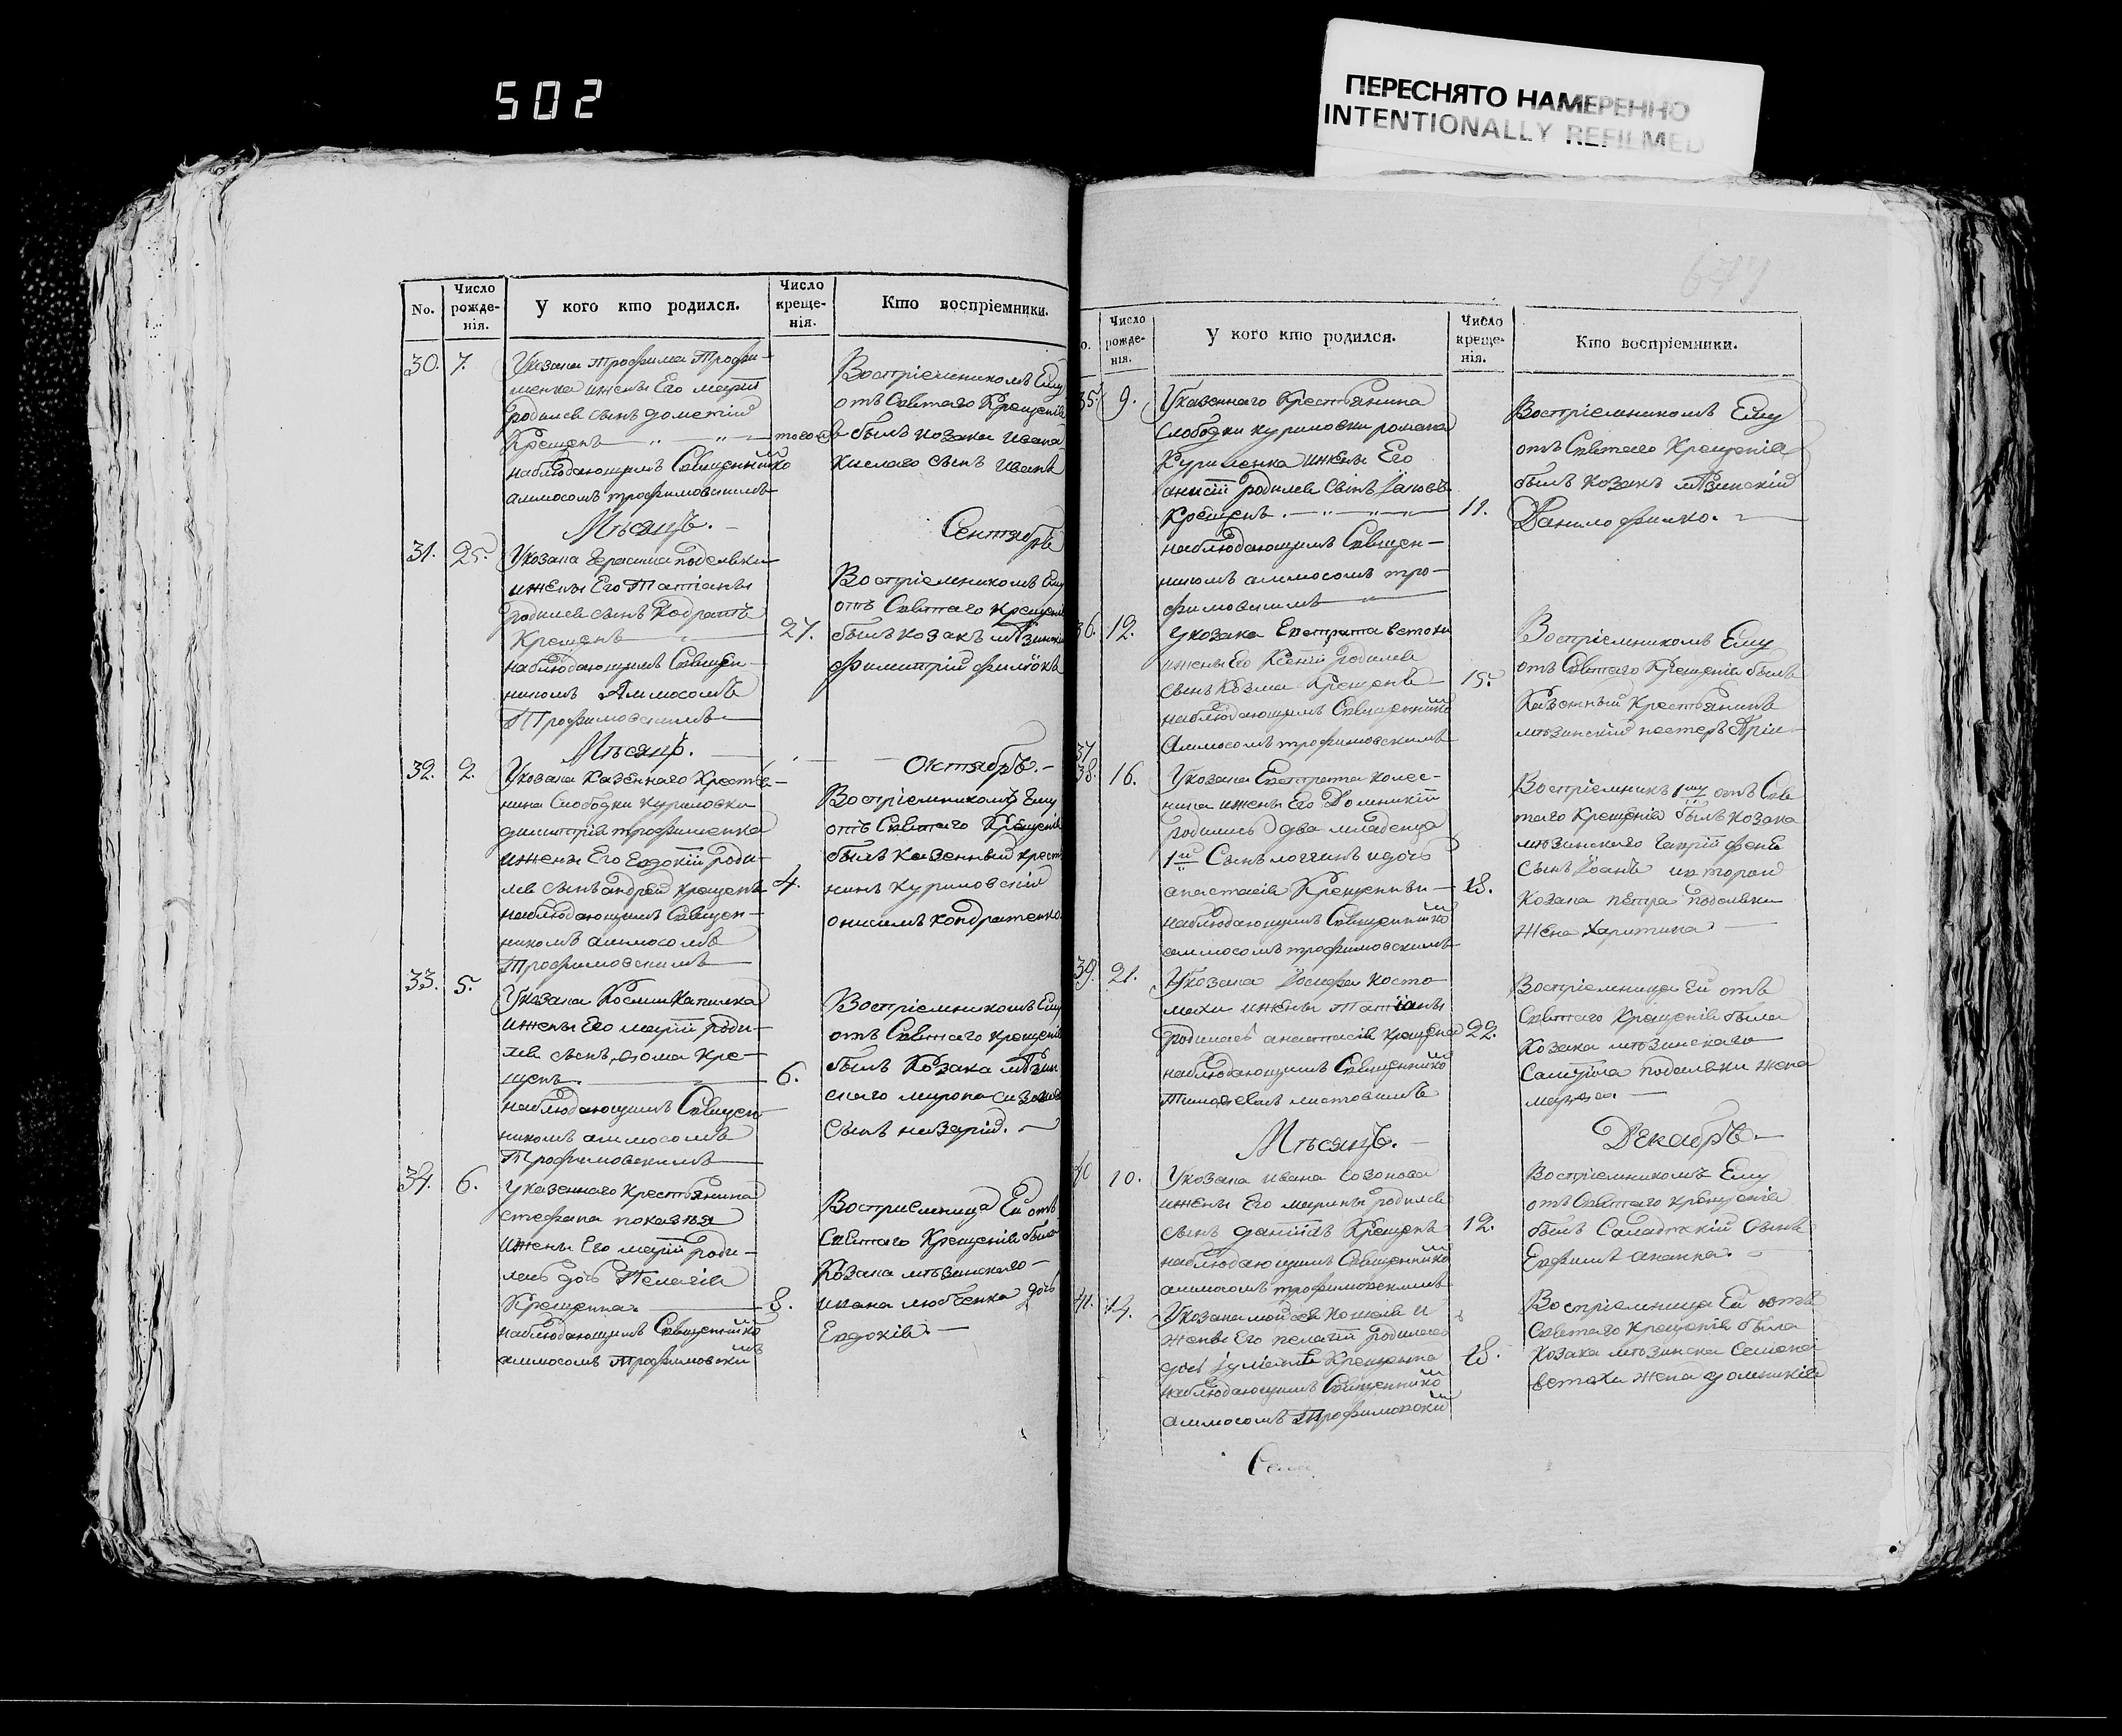 502
ПЕРЕСНЯТО НАМЕРЕННО
INTENTIONALLY REFILMED
No.
Число рожде- нія.
У кого кто родился.
Число креще- нія.
Кто воспріемники.
30. 7.
Укозака Трофима Трофи-
менка ижены Его маріи
родился сынъ дометій
Крещенъ того
наблюдающимъ Священнико
аммосомъ трофимовскимъ
Воспріемникомъ Ему
отъ Святаго Крещенія
былъ козака ивана
Кислаго сынъ иванъ
Мѣсяцъ. Сентябрь
31. 25.
Укозака Герасима подолвки
ижены Его Татіаны
родился сынъ Кодратъ
Крещенъ 27.
наблюдающимъ Священ-
никомъ Аммосомъ
Трофимовскимъ
Воспріемникомъ Ему
отъ Святаго Крещенія
былъ козакъ
Мѣсяцъ. Октябрь.
32. 2.
Укозака Казеннаго Крестья-
нина Слободки Куриловки
димитрія трофименка
ижены Его Евдокіи роди-
лся сынъ андрей крещенъ 4.
наблюдающимъ Священ-
никомъ аммосомъ
Трофимовскимъ
Воспріемникомъ Ему
отъ Святаго Крещенія
былъ Казенный крест
нинъ Куриловскій
онисимъ кондратенко
33. 5.
Укозака Космы Капилка
ижены Его маріи роди-
лся сынъ, ѳома кре-
щенъ. 6.
наблюдающимъ Священ-
никомъ аммосомъ
Трофимовскимъ
Воспріемникомъ Ему
отъ Святаго крещенія
былъ Козака мѣзин
скаго мирона
Сынъ назарій.
34. 6.
Указеннаго Крестьянина
стефана
ижены Его маріи роди-
лась дочь Пелагія
Крещенна. 8.
наблюдающимъ Священнико
аммосомъ Трофимовски
Воспріемница Ей отъ
Святаго Крещенія была
Козака мѣзинскаго
ивана любченка дочь
Евдокія.
No.
Число рожде- нія.
У кого кто родился.
Число креще- нія.
Кто воспріемники.
35. 9.
Указеннаго Крестьянина
Слободки куриловки романа
Куриленка ижены Его
анисіи родился Сынъ Іаковъ
Крещенъ. 11.
наблюдающимъ Священ-
никомъ аммосомъ тро-
фимовскимъ
Воспріемникомъ Ему
отъ Святаго Крещенія
былъ Козакъ мѣзинскій
Данило филко.
36. 12.
Укозака Евстрата встохи
ижены Его Ксеніи родился
сынъ Козма Крещенъ 15.
наблюдающимъ Священнико
Аммосомъ трофимовскимъ
Воспріемникомъ Ему
отъ Святаго Крещенія былъ
Казенный Крестьянинъ
мѣзинскій
37
38. 16.
Укозака Евстрата колес-
ника ижены Его Домникіи
родились два младенца
1й Сынъ логгинъ идочь
анастасія Крещенны 18.
наблюдающимъ Священнико
аммосомъ трофимовскимъ
Воспріемникъ 1му отъ Свя
таго Крещенія былъ козака
мѣзинскаго
Сынъ Іоанъ
Козака петра подолвки
жена харитина
39. 21.
Укозака Іосифа косто-
махи ижены Татіаны
родилась анастасія крещена 22.
наблюдающимъ Священнико
Тимоѳеемъ листовимъ
Воспріемница Ей отъ
Святаго Крещенія была
Козака мѣзинскаго
Самуила подолвки жена
марѳа.
Мѣсяцъ. Декабрь
40 10.
Укозака ивана Созонова
ижены Его марины родился
сынъ даніилъ Крещенъ 12.
наблюдающимъ Священнико
аммосомъ трофимовскимъ
Воспріемникомъ Ему
отъ Святаго крещенія
былъ Сынъ
Евфимъ
41. 14.
Укозака мойсея Кошеля и
жены Его пелагіи родилась
дочь Іуліанія Крещенна 18.
наблюдающимъ Священнико
аммосомъ Трофимовски
Воспріемница Ей отъ
Святаго Крещенія была
Козака мѣзинска Семена
встохи жена домникія